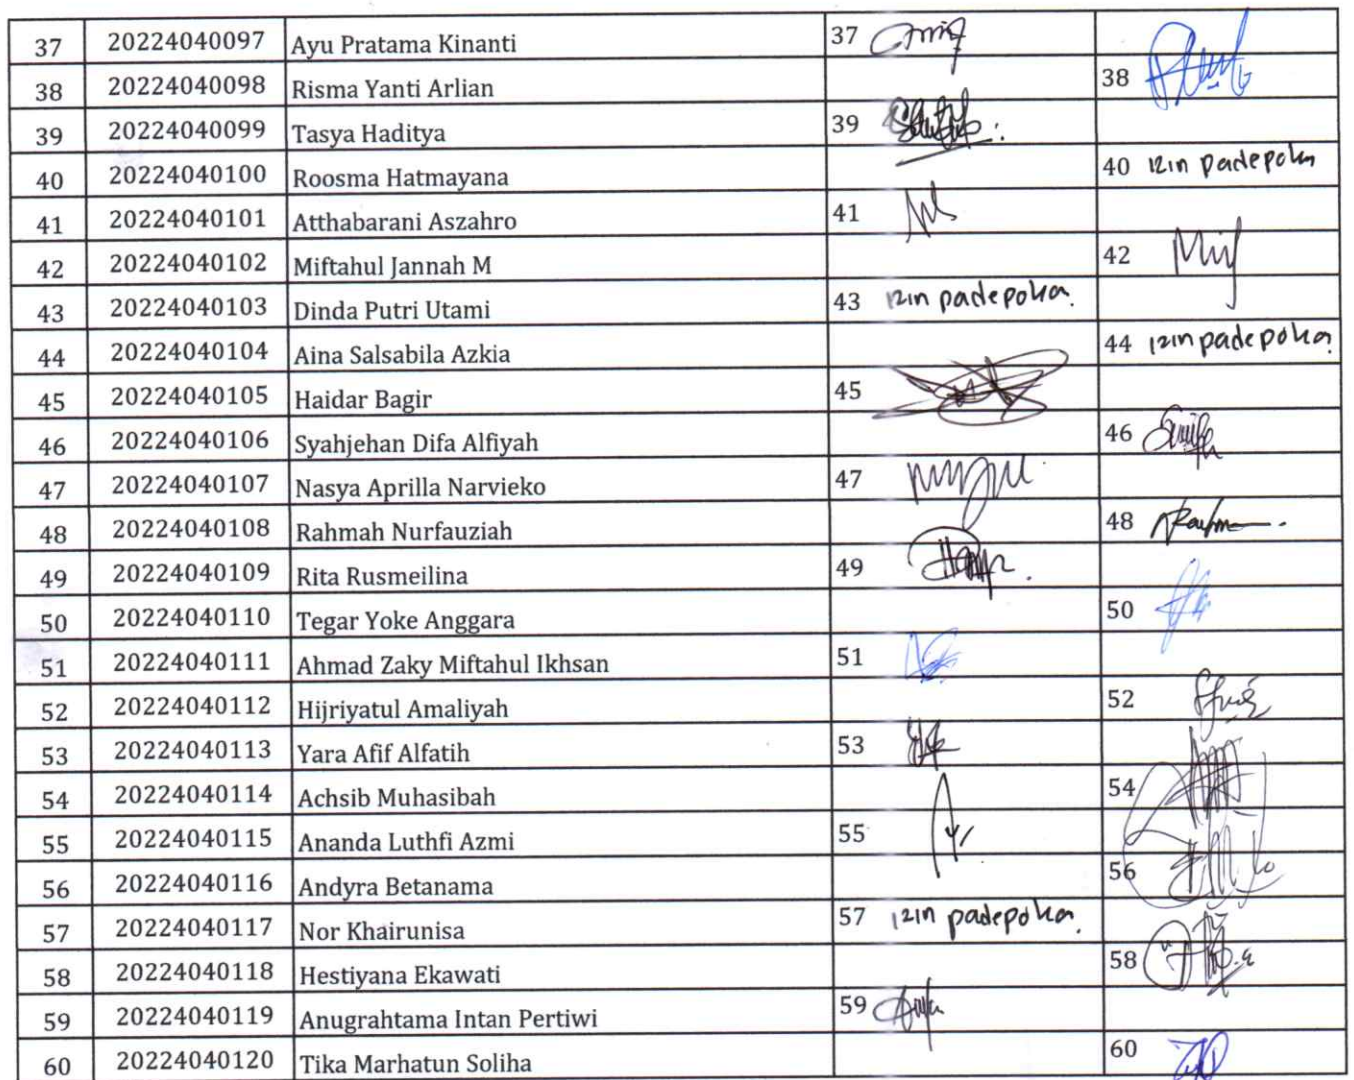 37 20224040097 Ayu Pratama Kinanti 37
38 20224040098 Risma Yanti Arlian 38
39 20224040099 Tasya Haditya 39
40 20224040100 Roosma Hatmayana 40 izin padepoka
41 20224040101 Atthabarani Aszahro 41
42 20224040102 Miftahul Jannah M 42
43 20224040103 Dinda Putri Utami 43 izin padepoka.
44 20224040104 Aina Salsabila Azkia 44 izin padepoka.
45 20224040105 Haidar Bagir 45
46 20224040106 Syahjehan Difa Alfiyah 46
47 20224040107 Nasya Aprilla Narvieko 47
48 20224040108 Rahmah Nurfauziah 48
49 20224040109 Rita Rusmeilina 49
50 20224040110 Tegar Yoke Anggara 50
51 20224040111 Ahmad Zaky Miftahul Ikhsan 51
52 20224040112 Hijriyatul Amaliyah 52
53 20224040113 Yara Afif Alfatih 53
54 20224040114 Achsib Muhasibah 54
55 20224040115 Ananda Luthfi Azmi 55
56 20224040116 Andyra Betanama 56
57 20224040117 Nor Khairunisa 57 izin padepoka.
58 20224040118 Hestiyana Ekawati 58
59 20224040119 Anugrahtama Intan Pertiwi 59
60 20224040120 Tika Marhatun Soliha 60